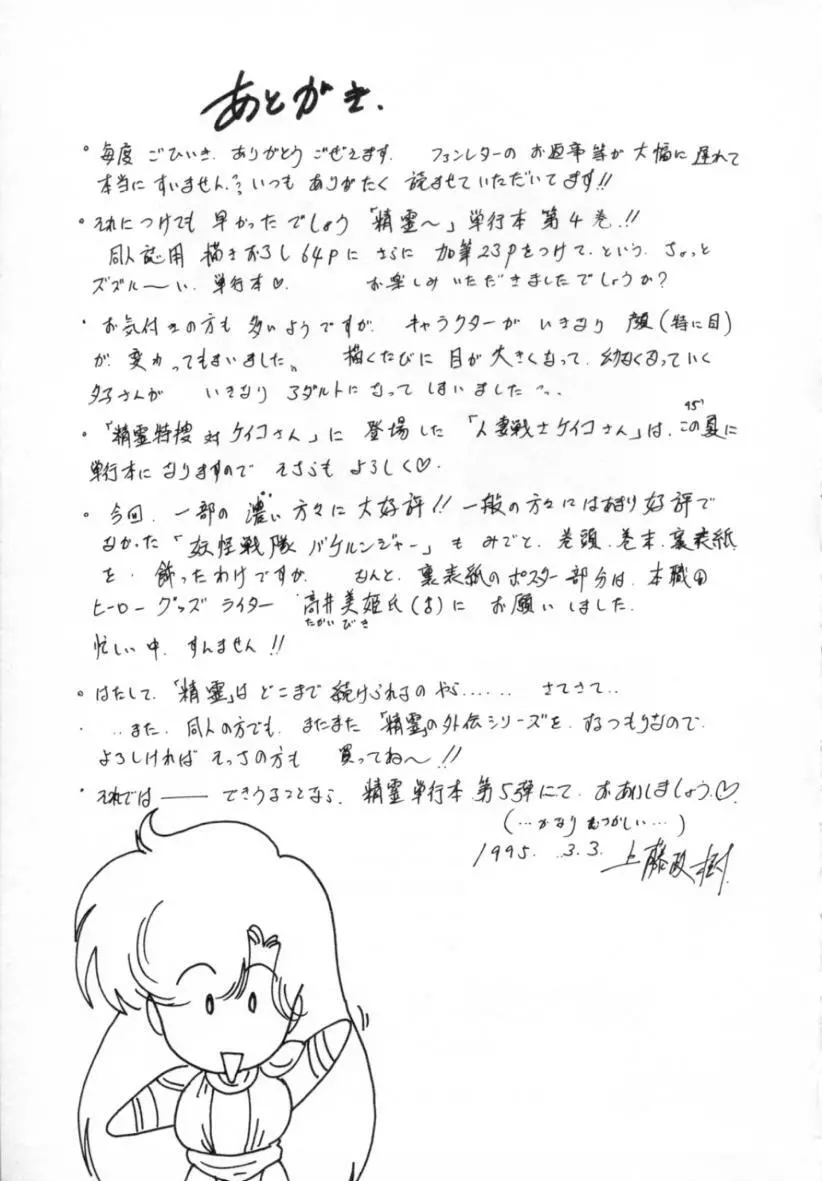 あとがき.
。毎度 ごひいき ありがとう ごぜえます. ファンレターの お返事等が 大幅に 遅れて
本当に すいません いつも ありがたく 読ませていただいてます!!
。それにつけても 早かった でしょう「精霊〜」単行本 第4巻.!!
同人誌用 描きおろし 64Pに さらに 加筆23Pをつけて. という. ちょっと
ズズル〜い. 単行本♡. お楽しみ いただきましたでしょうか?
・お気付きの方も 多いようですが. キャラクターが いきなり 顔(特に目)
が. 変わってしまいました。 描くたびに 目が 大きくなって. 幼なくなっていく
タ子さんが いきなり アダルトに なって しまいました
。「精霊特捜 対 ケイコさん」に 登場した「人妻戦士ケイコさん」は. この夏に
95'
単行本に なりますので そちらも よろしく♡.
。今回. 一部の 濃い 方々に 大好評!! 一般の方々には あまり 好評で
なかった「妖怪戦隊 バケルンジャー」も みごと. 巻頭. 巻末. 裏表紙
を. 飾ったわけですが. なんと. 裏表紙の ポスター部分は. 本職の
ヒーロー グッズ ライター 高井美姫氏(お)に お願いしました.
たかい びき
忙しい中. すんません!!
。はたして.「精霊」は どこまで 続けられるの やら...... さてさて..
・..また. 同人の方でも. またまた「精霊」の外伝シリーズを. するつもりなので.
よろしければ そっちの方も 買ってね〜!!
・それでは―― できうることなら. 精霊単行本 第5弾にて. おあいしましょう.♡
(…かなり むつかしい…)
1995. 3.3. 上藤政樹